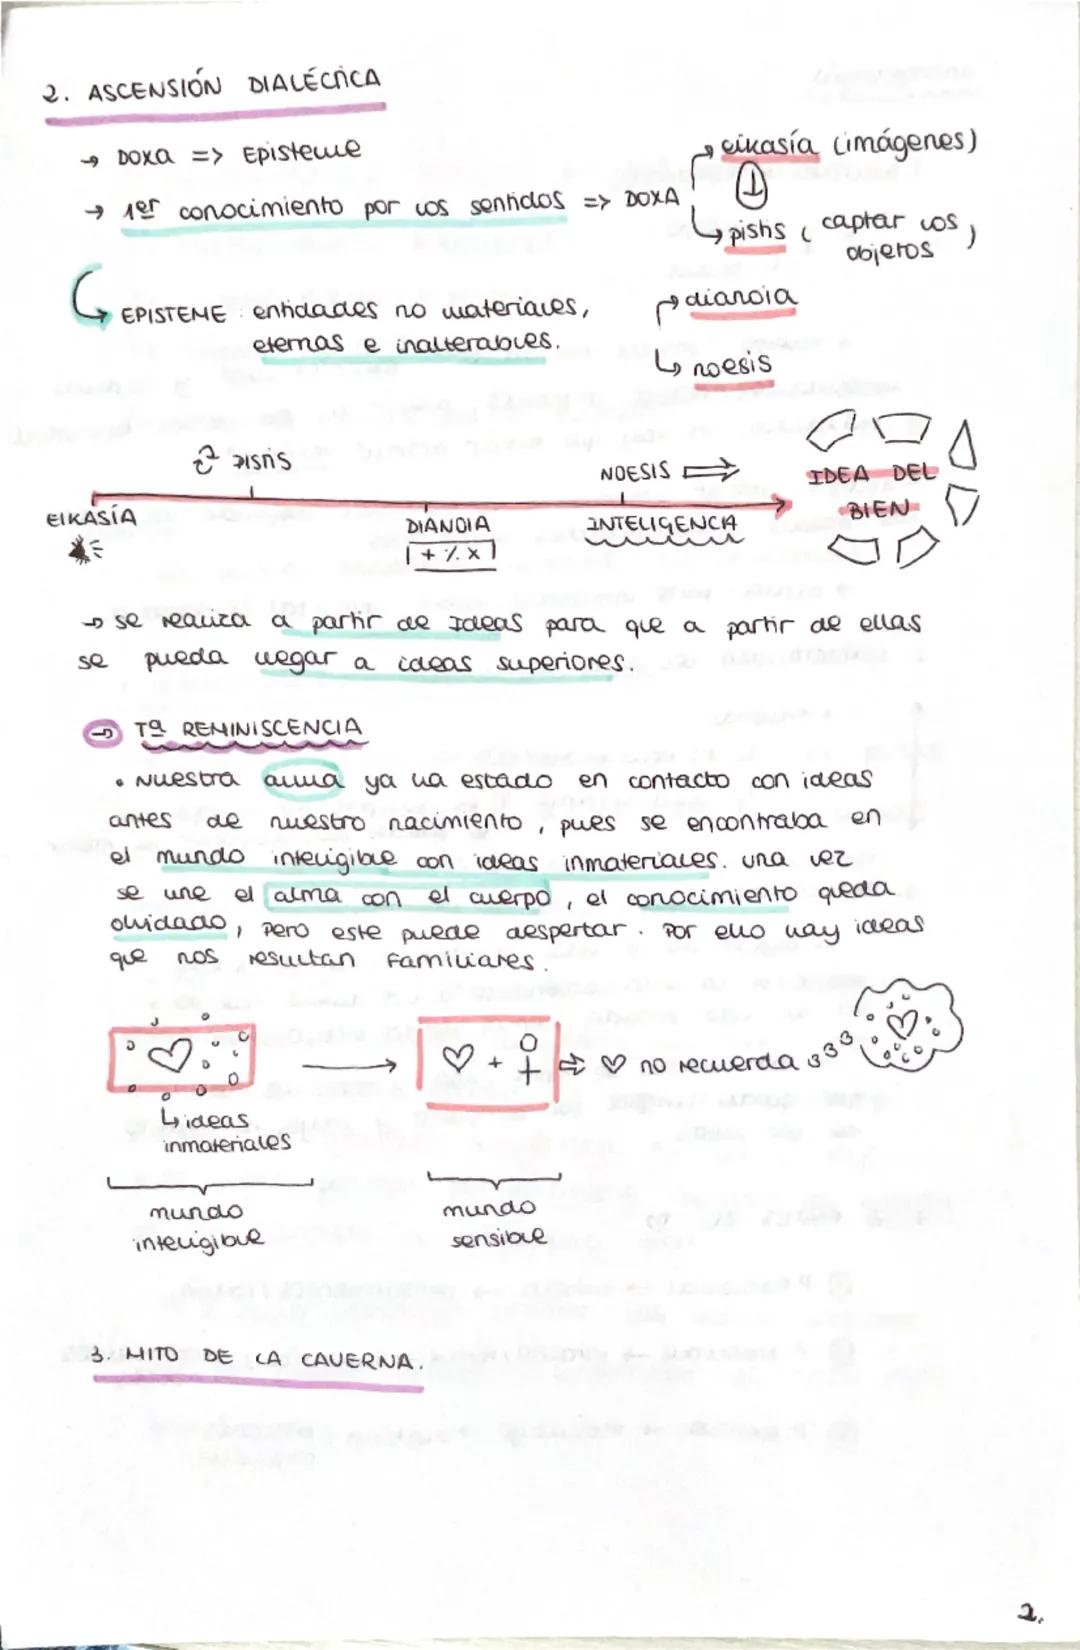 2. ASCENSIÓN DIALÉCTICA
→ DOXA => Episteme
eikasía (imágenes)
→ 1er conocimiento por los sentidos => DOXA
①
pistis ( captar los objetos )
EPISTEME : entidades no materiales,
eternas e inalterables.
dianoia
noesis
PISTIS
NOESIS
IDEA DEL
BIEN
EIKASÍA
DIANOIA
INTELIGENCIA
+ % x
→ se realiza a partir de Ideas para que a partir de ellas
se pueda llegar a ideas superiores.
→ Tª REMINISCENCIA
• Nuestra alma ya ha estado en contacto con ideas
antes de nuestro nacimiento, pues se encontraba en
el mundo inteligible con ideas inmateriales. una vez
se une el alma con el cuerpo, el conocimiento queda
olvidado, pero este puede despertar. Por ello hay ideas
que nos resultan familiares.
♡ + ⇒ ♡ no recuerda
↳ ideas
inmateriales
mundo
inteligible
mundo
sensible
3. MITO DE LA CAVERNA.
2.